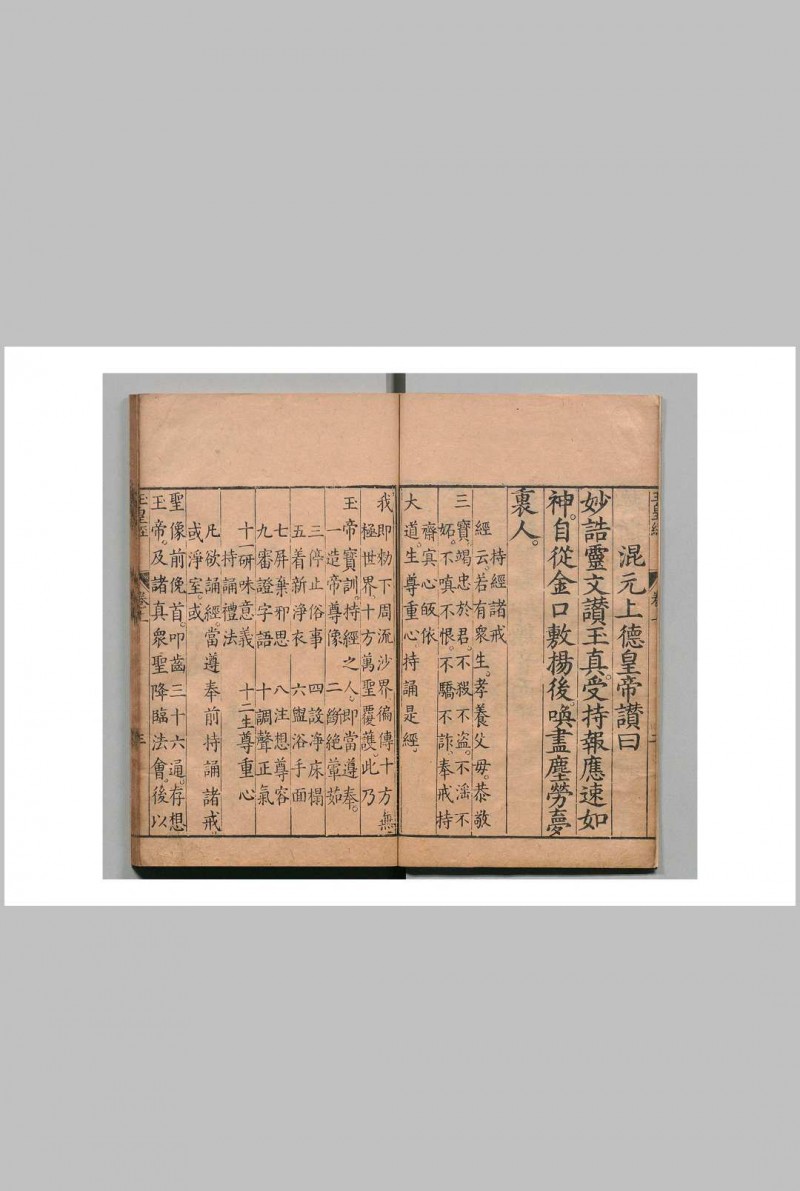 玉皇經
混元上德皇帝讚曰
妙誥靈文讚玉真。受持報應速如
神。自從金口敷楊後。喚盡塵勞夢
裏人。
持經諸戒
經云。若有衆生。孝養父母。恭敬
三寶。竭忠於君。不殺不盜。不滛不
妬。不嗔不恨。不驕不詐。奉戒持
齋。寘心皈依
大道。生尊重心持誦是經。
我即勑下周流沙界徧傳十方無
極世界。十方萬聖覆護。此乃
玉帝寶訓。持經之人。即當遵奉。
一造帝尊像 二斷絶葷茹
三停止俗事 四設净床榻
五着新淨衣 六盥浴手面
七屏棄邪思 八注想尊容
九審證字語 十調聲正氣
十一研味意義 十二生尊重心
持誦禮法
凡欲誦經。當遵奉前持誦諸戒。
或淨室。或
聖像前俛首。叩齒三十六通。存想
玉帝。及諸真衆聖降臨法會。後以
玉皇經 卷上 三